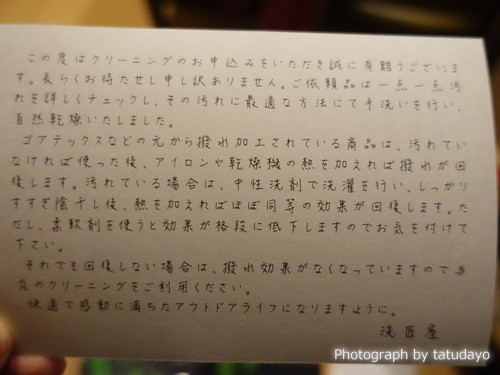 この度はクリーニングのお申込みをいただき誠に有難うございま
す。長らくお待たせし申し訳ありません。ご依頼品は一点一点汚
れを詳しくチェックし、その汚れに最適な方法にて手洗いを行い、
自然乾燥いたしました。
ゴアテックスなどの元から撥水加工されている商品は、汚れてい
なければ使った後、アイロンや乾燥機の熱を加えれば撥水が回
復します。汚れている場合は、中性洗剤で洗濯を行い、しっかり
すすぎ陰干し後、熱を加えればほぼ同等の効果が回復します。た
だし、柔軟剤を使うと効果が格段に低下しますのでお気を付けて
下さい。
それでも回復しない場合は、撥水効果がなくなっていますので当
店のクリーニングをご利用ください。
快適で感動に満ちたアウトドアライフになりますように。
洗匠屋
Photograph by tatudayo